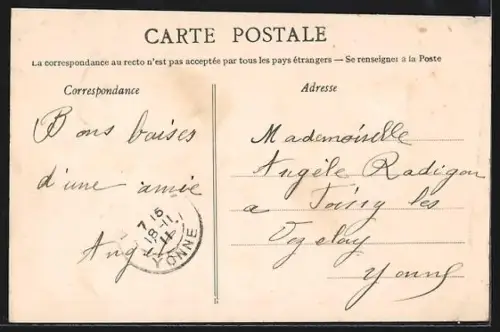 CARTE POSTALE
La correspondance au recto n'est pas acceptée par tous les pays étrangers — Se renseigner à la Poste
Correspondance
Adresse
Bons baisers
d'une amie
Mademoiselle
Angèle Radigon
a les
Yonne
7 15
18-11
11
YONNE